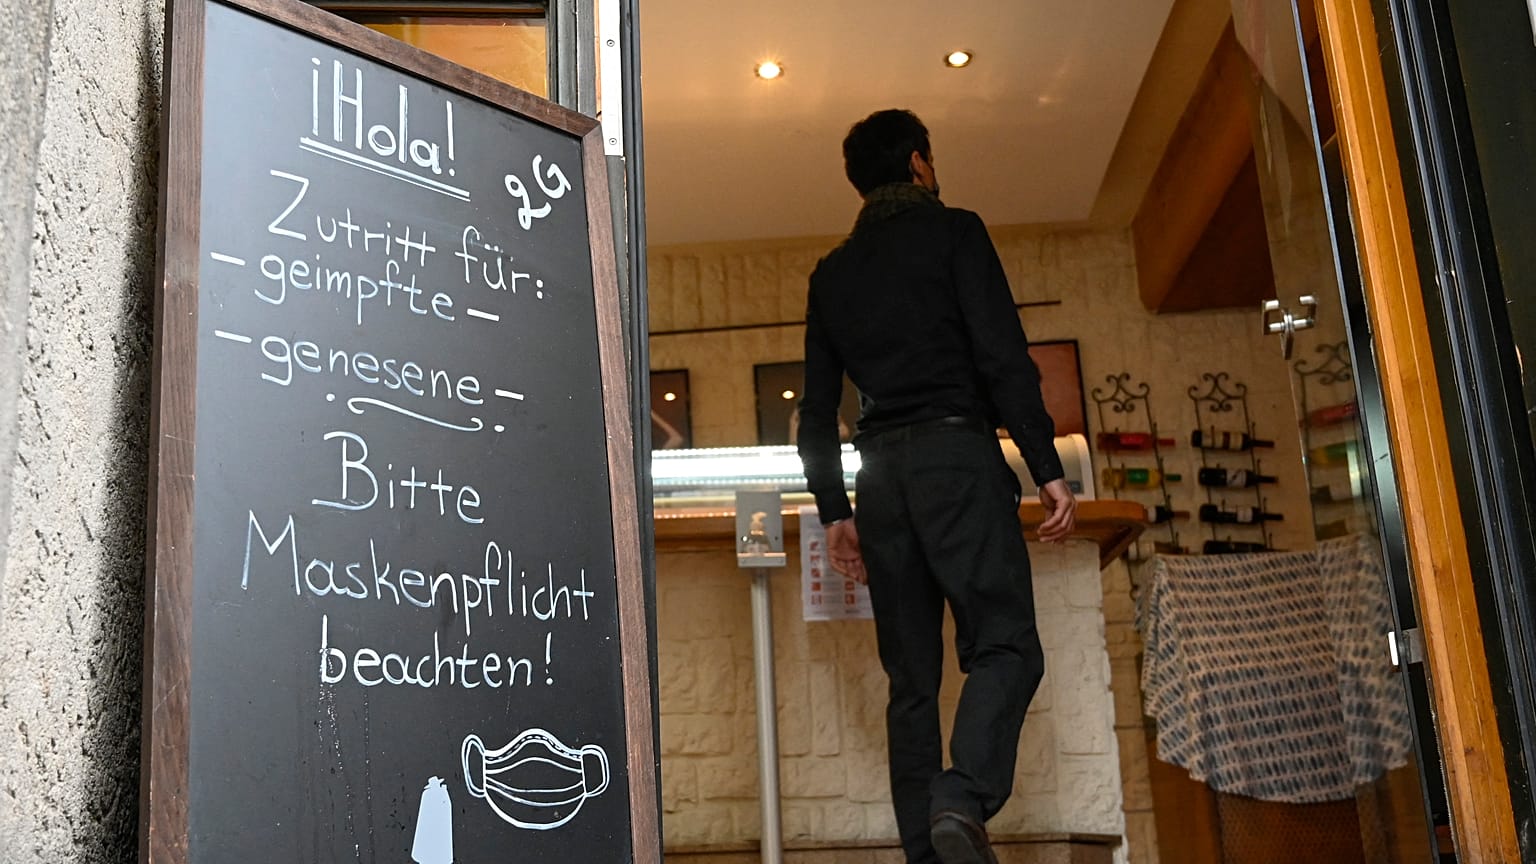 ¡Hola!
2G
Zutritt für:
- geimpfte -
- genesene -
Bitte
Maskenpflicht
beachten!